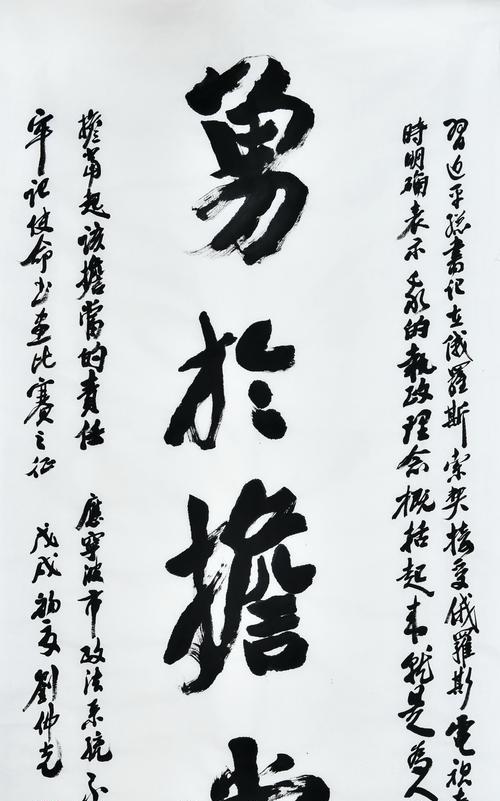 習近平總書记在俄羅斯索契接受俄羅斯電視
時明确表示我的執政理念概括起来就是為人
勇於擔當
擔當起该擔當的責任 應寧波市政法系统不
牢记使命书画比赛之征 戊戌初夏劉佛光